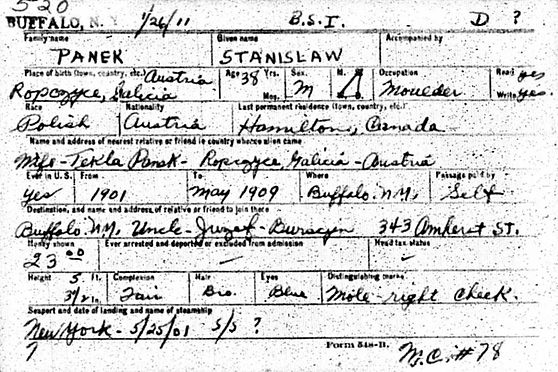 5-20
BUFFALO, N. Y. 1/26/11 B.S.I. D ?
Family name Given name Accompanied by
PANEK STANISLAW
Place of birth (town, country, etc.) Austria Age 38 Yrs. Sex. M. Occupation Read yes
Ropczyce, Galicia Mos. M Moulder Write yes.
Race Nationality Last permanent residence (town, country, etc.)
Polish Austria Hamilton, Canada
Name and address of nearest relative or friend in country whence alien came
Wife - Tekla Panek - Ropczyce, Galicia - Austria
Ever in U.S. From To Where Passage paid by
yes 1901 May 1909 Buffalo. N.Y. Self
Destination, and name and address of relative or friend to join there
Buffalo. N.Y. Uncle - Jozef - 343 Amherst St.
Money shown Ever arrested and deported or excluded from admission Head tax status
23 00 - -
Height 5 ft. Complexion Hair Eyes Distinguishing marks
3 1/2 in. Fair Bro. Blue Mole - right cheek.
Seaport and date of landing and name of steamship
New York - 5/25/01 S/S ?
7 Form 548-B. M.C. # 78